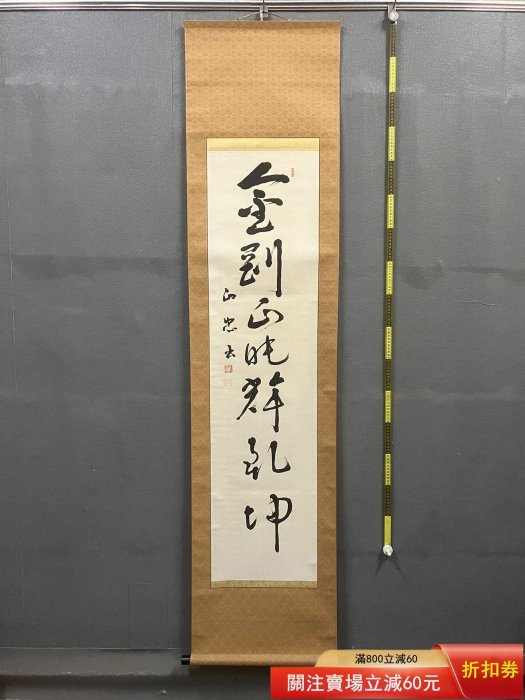 金剛正眼輝乾坤
滿800立減60
關注賣場立減60元
折扣券